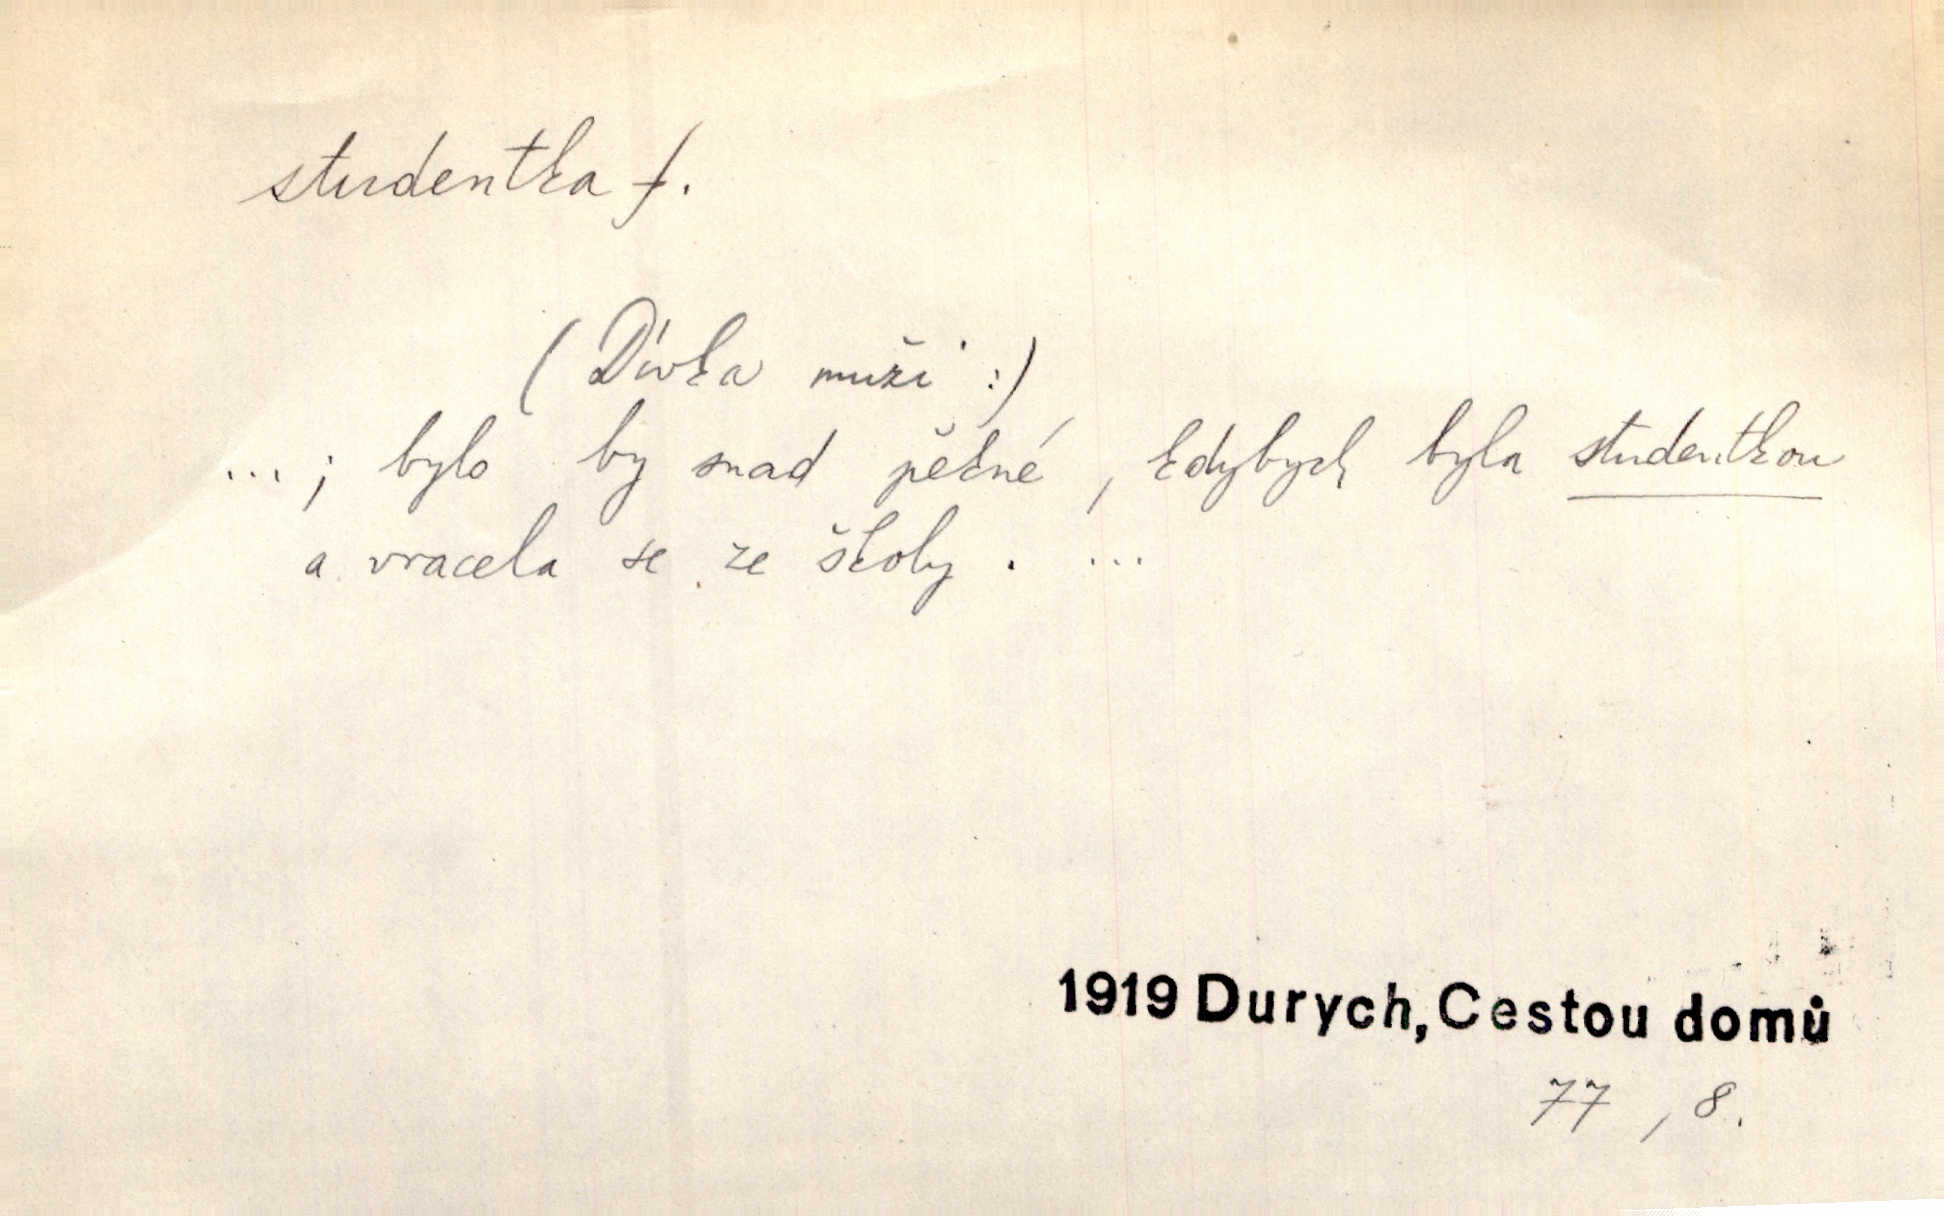 studentka f.
(Dívka muži :)
...; bylo by snad pěkné, kdybych byla studentkou
a vracela se ze školy. ...
1919 Durych, Cestou domů
77, 8.